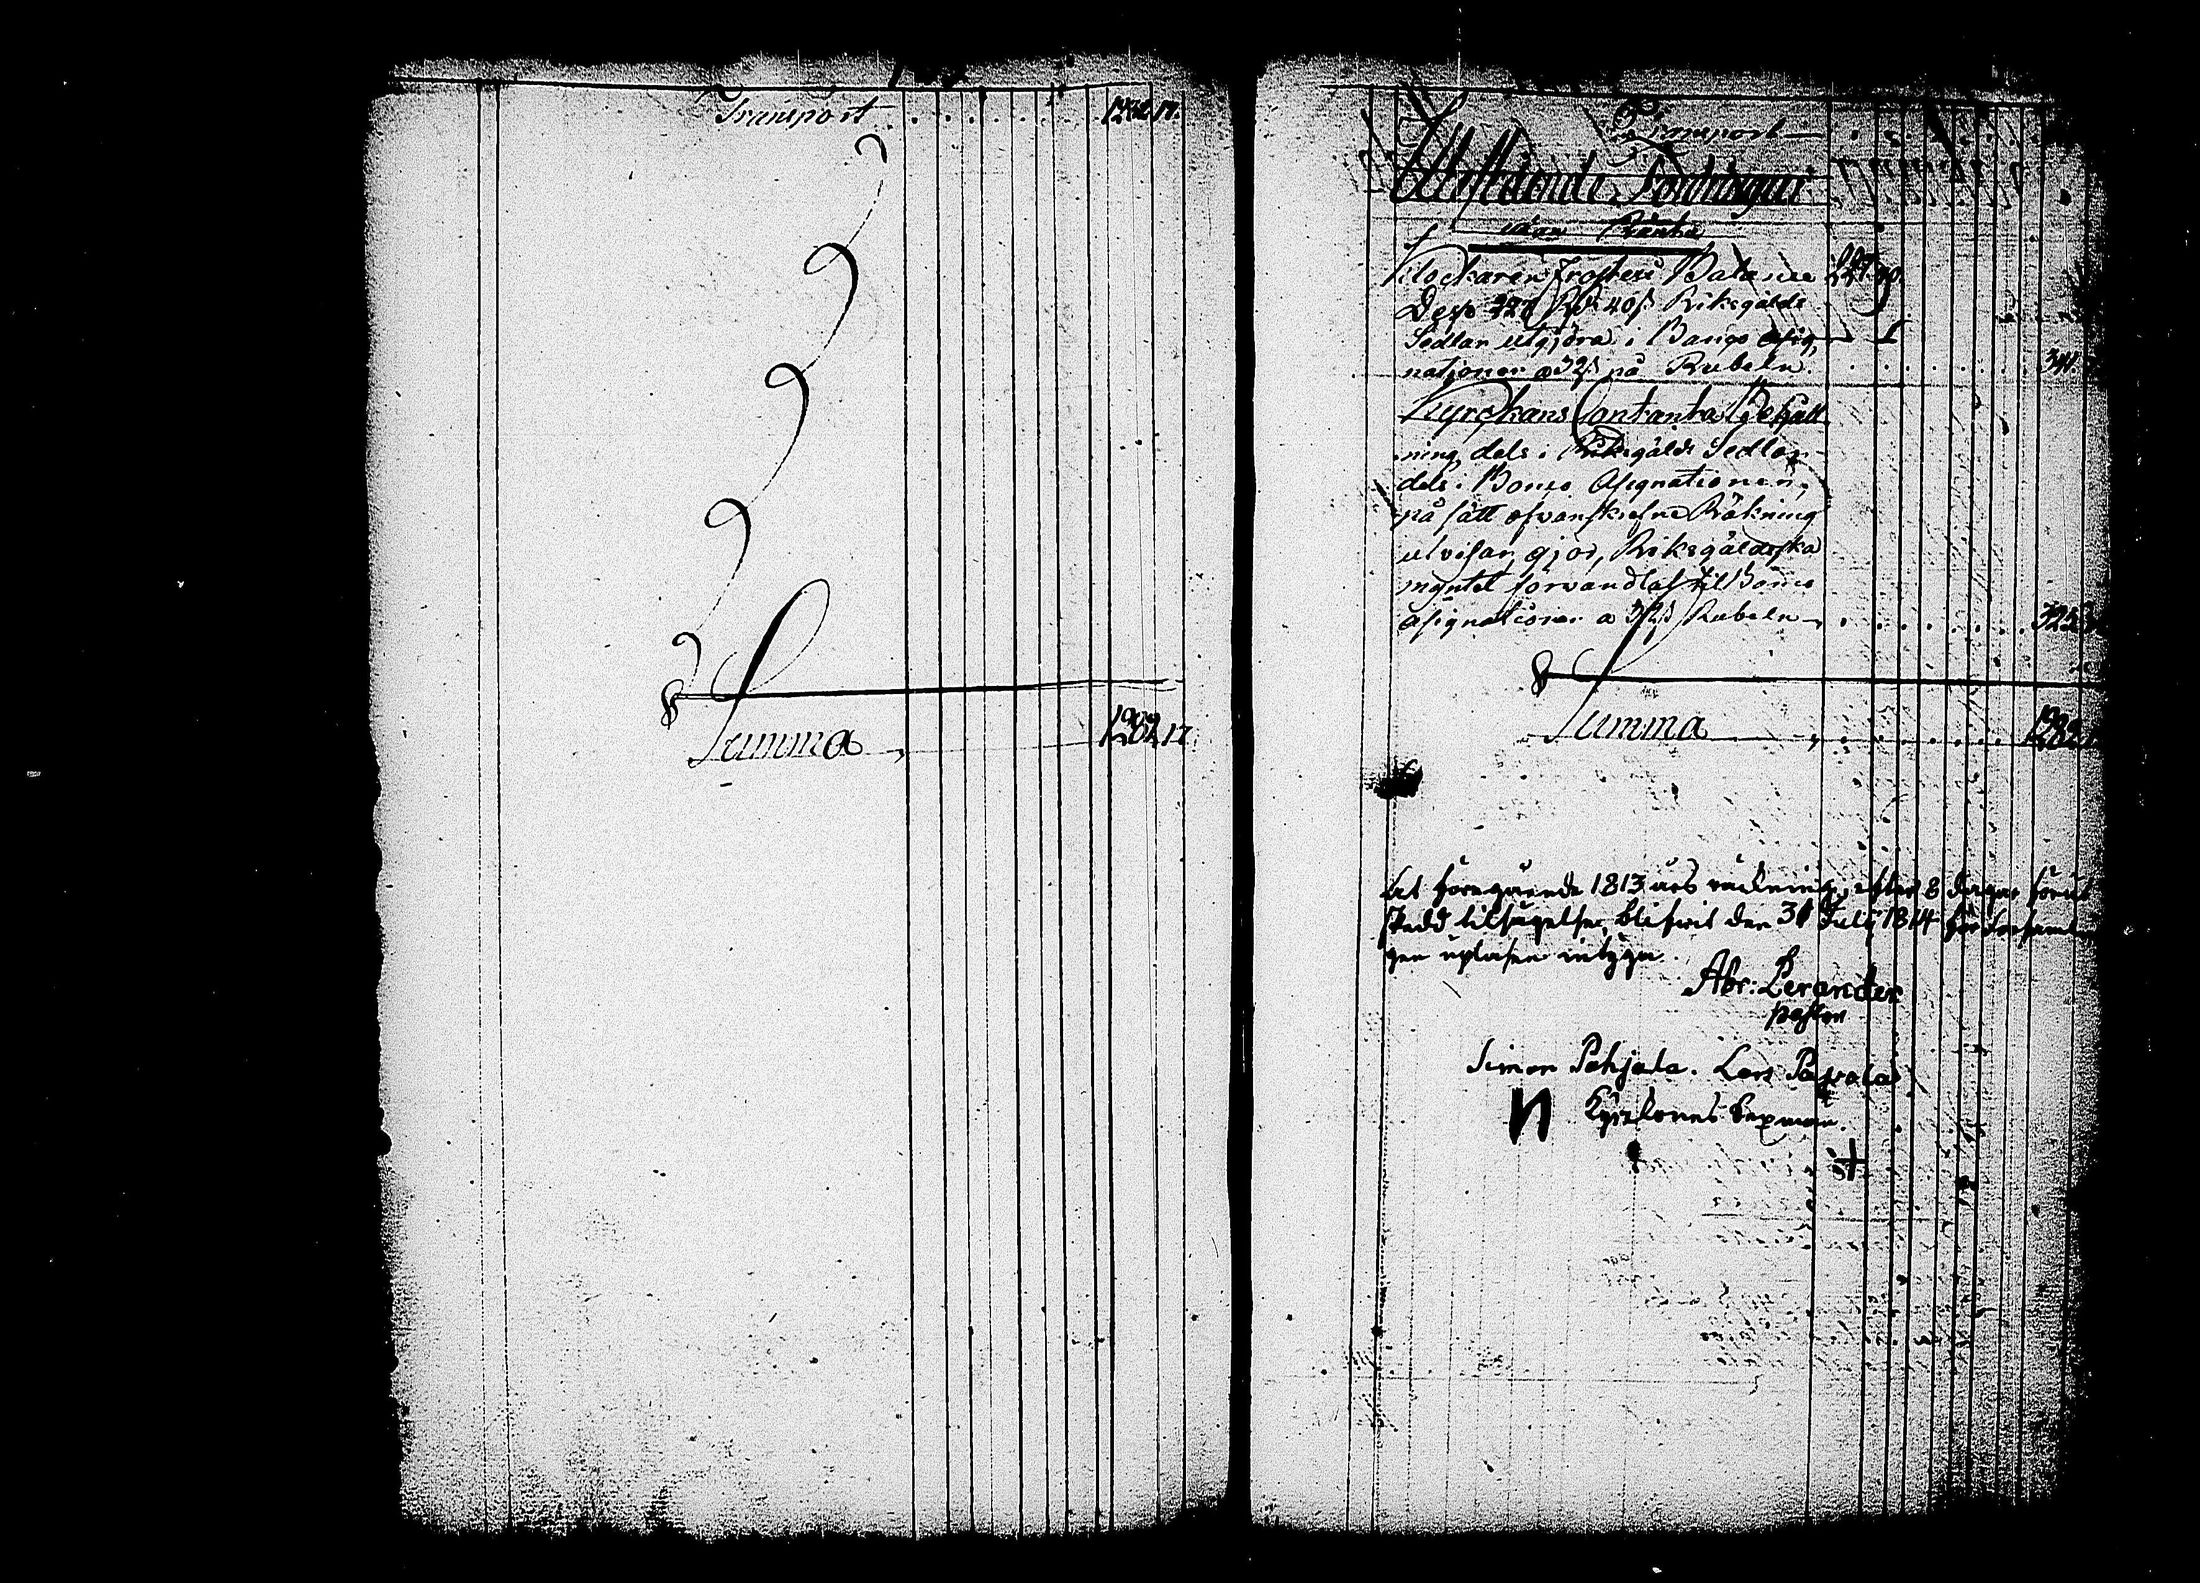 Transport 1282 17.
Summa 1282 17
Transport
Utestående Fordringar
utan Ränta
Klockaren Frosteri Balance 227 40
Desse 227 Rd 40 s Riksgälds
Sedlar utgjöra i Banco Assig-
nationer a 32 s på Rubeln 341.
Kyrckans Contanta Behåll
ning dels i Riksgälds Sedlar
dels i Banco Assignationer,
på sätt ofvanskrefne Räkning
utvisar, gjör, Riksgäldska
myntet förvandlat til Banco
Assignationer a 32 s Rubeln 325
Summa 1282
At föregående 1813 års räkning, efter 8 dagar förut
skedd tilsägelse, blifvit den 31 Julij 1814 för Församlin
gen upläsen intyga
Abr: Lerander
pastor
Simon Pohjala. Lars Pavola
n Kyrkones Sexmän.
+